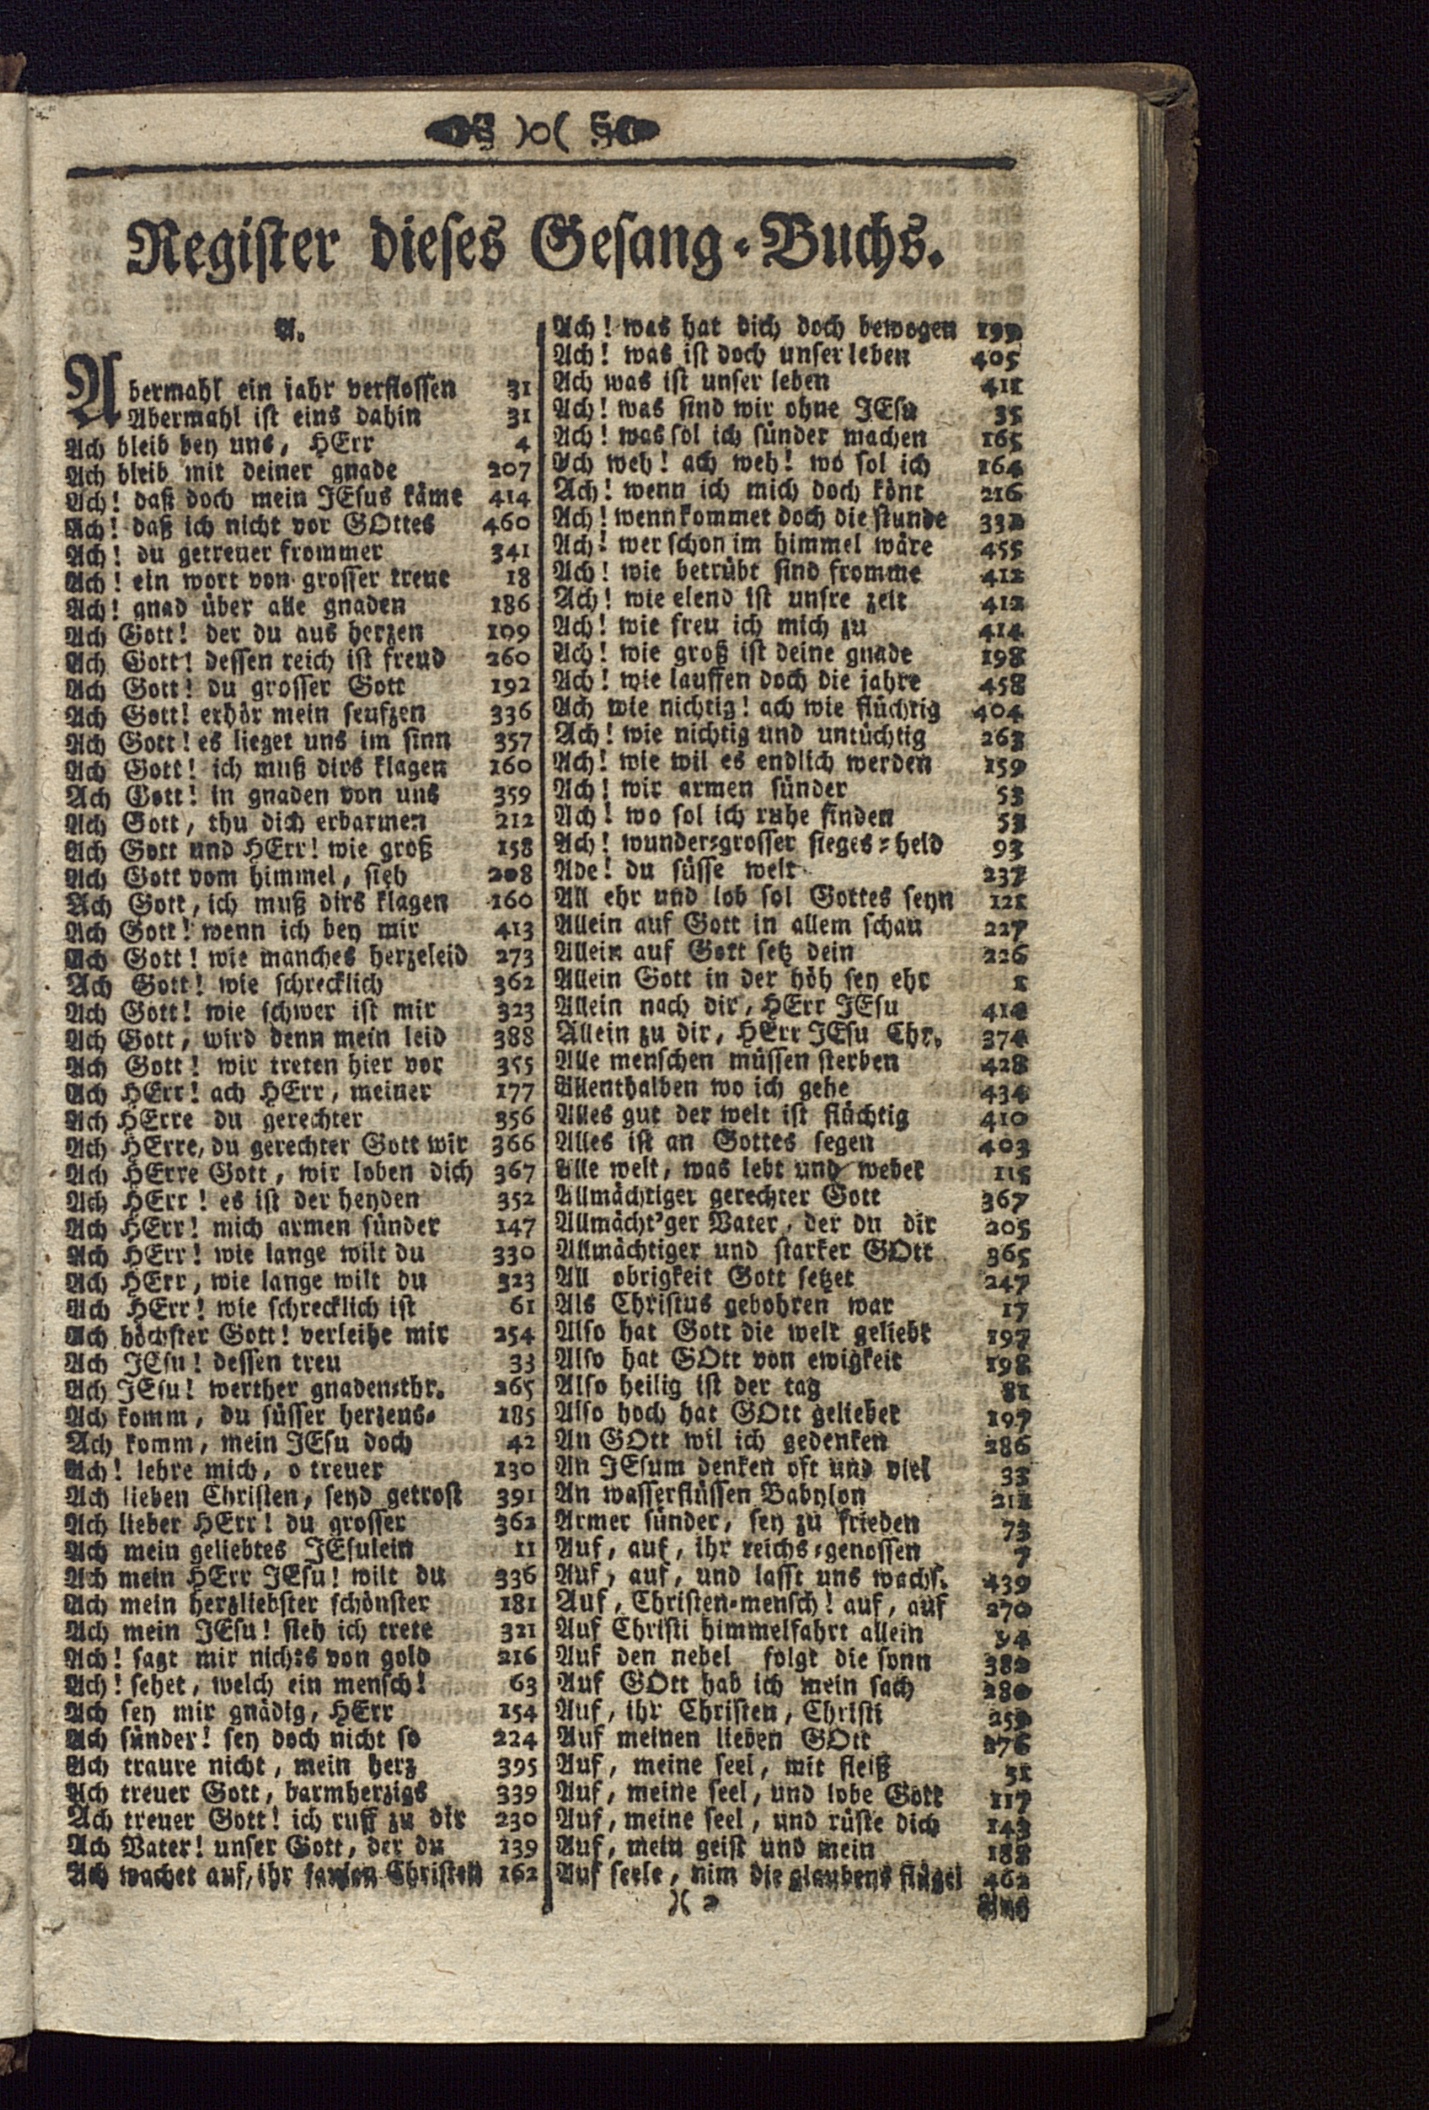 )o(
Register dieses Gesang-Buchs.
A.
Abermahl ein jahr verflossen 31
Abermahl ist eins dahin 31
Ach bleib bey uns, HErr 4
Ach bleib mit deiner gnade 207
Ach! daß doch mein JEsus käme 414
Ach! daß ich nicht vor GOttes 460
Ach! du getreuer frommer 341
Ach! ein wort von grosser treue 18
Ach! gnad über alle gnaden 186
Ach Gott! der du aus herzen 109
Ach Gott! dessen reich ist freud 260
Ach Gott! du grosser Gott 192
Ach Gott! erhör mein seufzen 336
Ach Gott! es lieget uns im sinn 357
Ach Gott! ich muß dirs klagen 160
Ach Gott! in gnaden von uns 359
Ach Gott, thu dich erbarmen 212
Ach Gott und HErr! wie groß 158
Ach Gott vom himmel, sieh 208
Ach Gott, ich muß dirs klagen 160
Ach Gott! wenn ich bey mir 413
Ach Gott! wie manches herzeleid 273
Ach Gott! wie schrecklich 362
Ach Gott! wie schwer ist mir 323
Ach Gott, wird denn mein leid 388
Ach Gott! wir treten hier vor 355
Ach HErr! ach HErr, meiner 177
Ach HErre du gerechter 356
Ach HErre, du gerechter Gott wir 366
Ach HErre Gott, wir loben dich 367
Ach HErr! es ist der heyden 352
Ach HErr! mich armen sünder 147
Ach HErr! wie lange wilt du 330
Ach HErr, wie lange wilt du 323
Ach HErr! wie schrecklich ist 61
Ach höchster Gott! verleihe mir 254
Ach JEsu! dessen treu 33
Ach JEsu! werther gnaden-thr. 265
Ach komm, du süsser herzens- 185
Ach komm, mein JEsu doch 42
Ach! lehre mich, o treuer 130
Ach lieben Christen, seyd getrost 391
Ach lieber HErr! du grosser 362
Ach mein geliebtes JEsulein 11
Ach mein HErr JEsu! wilt du 336
Ach mein herzliebster schönster 181
Ach mein JEsu! sieh ich trete 321
Ach! sagt mir nichts von gold 216
Ach! sehet, welch ein mensch! 63
Ach sey mir gnädig, HErr 154
Ach sünder! sey doch nicht so 224
Ach traure nicht, mein herz 395
Ach treuer Gott, barmherzigs 339
Ach treuer Gott! ich ruff zu dir 230
Ach Vater! unser Gott, der du 139
Ach wachet auf, ihr faulen Christen 162
Ach! was hat dich doch bewogen 199
Ach! was ist doch unser leben 405
Ach was ist unser leben 411
Ach! was sind wir ohne JEsu 35
Ach! was sol ich sünder machen 165
Ach weh! ach weh! wo sol ich 164
Ach! wenn ich mich doch könt 216
Ach! wenn kommet doch die stunde 332
Ach! wer schon im himmel wäre 455
Ach! wie betrübt sind fromme 412
Ach! wie elend ist unsre zeit 412
Ach! wie freu ich mich zu 414
Ach! wie groß ist deine gnade 198
Ach! wie lauffen doch die jahre 458
Ach wie nichtig! ach wie flüchtig 404
Ach! wie nichtig und untüchtig 263
Ach! wie wil es endlich werden 159
Ach! wir armen sünder 53
Ach! wo sol ich ruhe finden 53
Ach! wunder-grosser sieges-held 93
Ade! du süsse welt 237
All ehr und lob sol Gottes seyn 121
Allein auf Gott in allem schau 227
Allein auf Gott setz dein 226
Allein Gott in der höh sey ehr 1
Allein nach dir, HErr JEsu 414
Allein zu dir, HErr JEsu Chr. 374
Alle menschen müssen sterben 428
Allenthalben wo ich gehe 434
Alles gut der welt ist flüchtig 410
Alles ist an Gottes segen 403
Alle welt, was lebt und webet 115
Allmächtiger gerechter Gott 367
Allmächt'ger Vater, der du dir 205
Allmächtiger und starker GOtt 365
All obrigkeit Gott setzet 247
Als Christus gebohren war 17
Also hat Gott die welt geliebt 197
Also hat GOtt von ewigkeit 198
Also heilig ist der tag 81
Also hoch hat GOtt geliebet 197
An GOtt wil ich gedenken 286
An JEsum denken oft und viel 33
An wasserflüssen Babylon 212
Armer sünder, sey zu frieden 73
Auf, auf, ihr reichs-genossen 7
Auf, auf, und lasst uns wachs. 439
Auf, Christen-mensch! auf, auf 270
Auf Christi himmelfahrt allein 94
Auf den nebel folgt die sonn 382
Auf GOtt hab ich mein sach 280
Auf, ihr Christen, Christi 259
Auf meinen lieben GOtt 276
Auf, meine seel, mit fleiß 51
Auf, meine seel, und lobe Gott 117
Auf, meine seel, und rüste dich 143
Auf, mein geist und mein 188
Auf seele, nim die glaubens flügel 462
)( 2
Aus